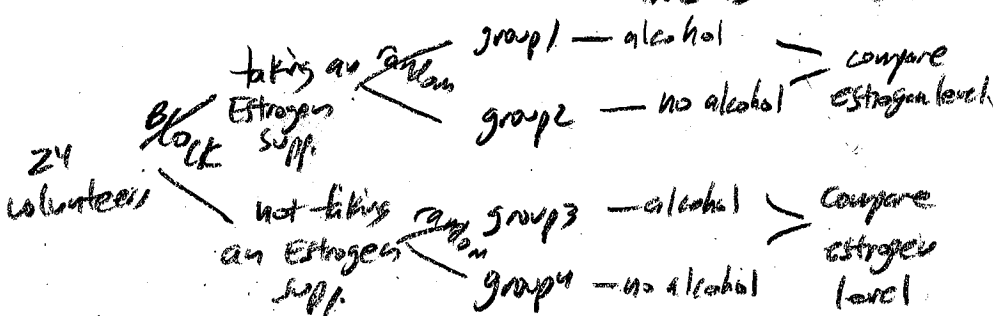 24
volunteers
BLOCK
taking an
Estrogen
supp.
random
group1 — alcohol
group2 — no alcohol
compare
estrogen level
not taking
an Estrogen
supp.
random
group3 — alcohol
group4 — no alcohol
Compare
estrogen
level